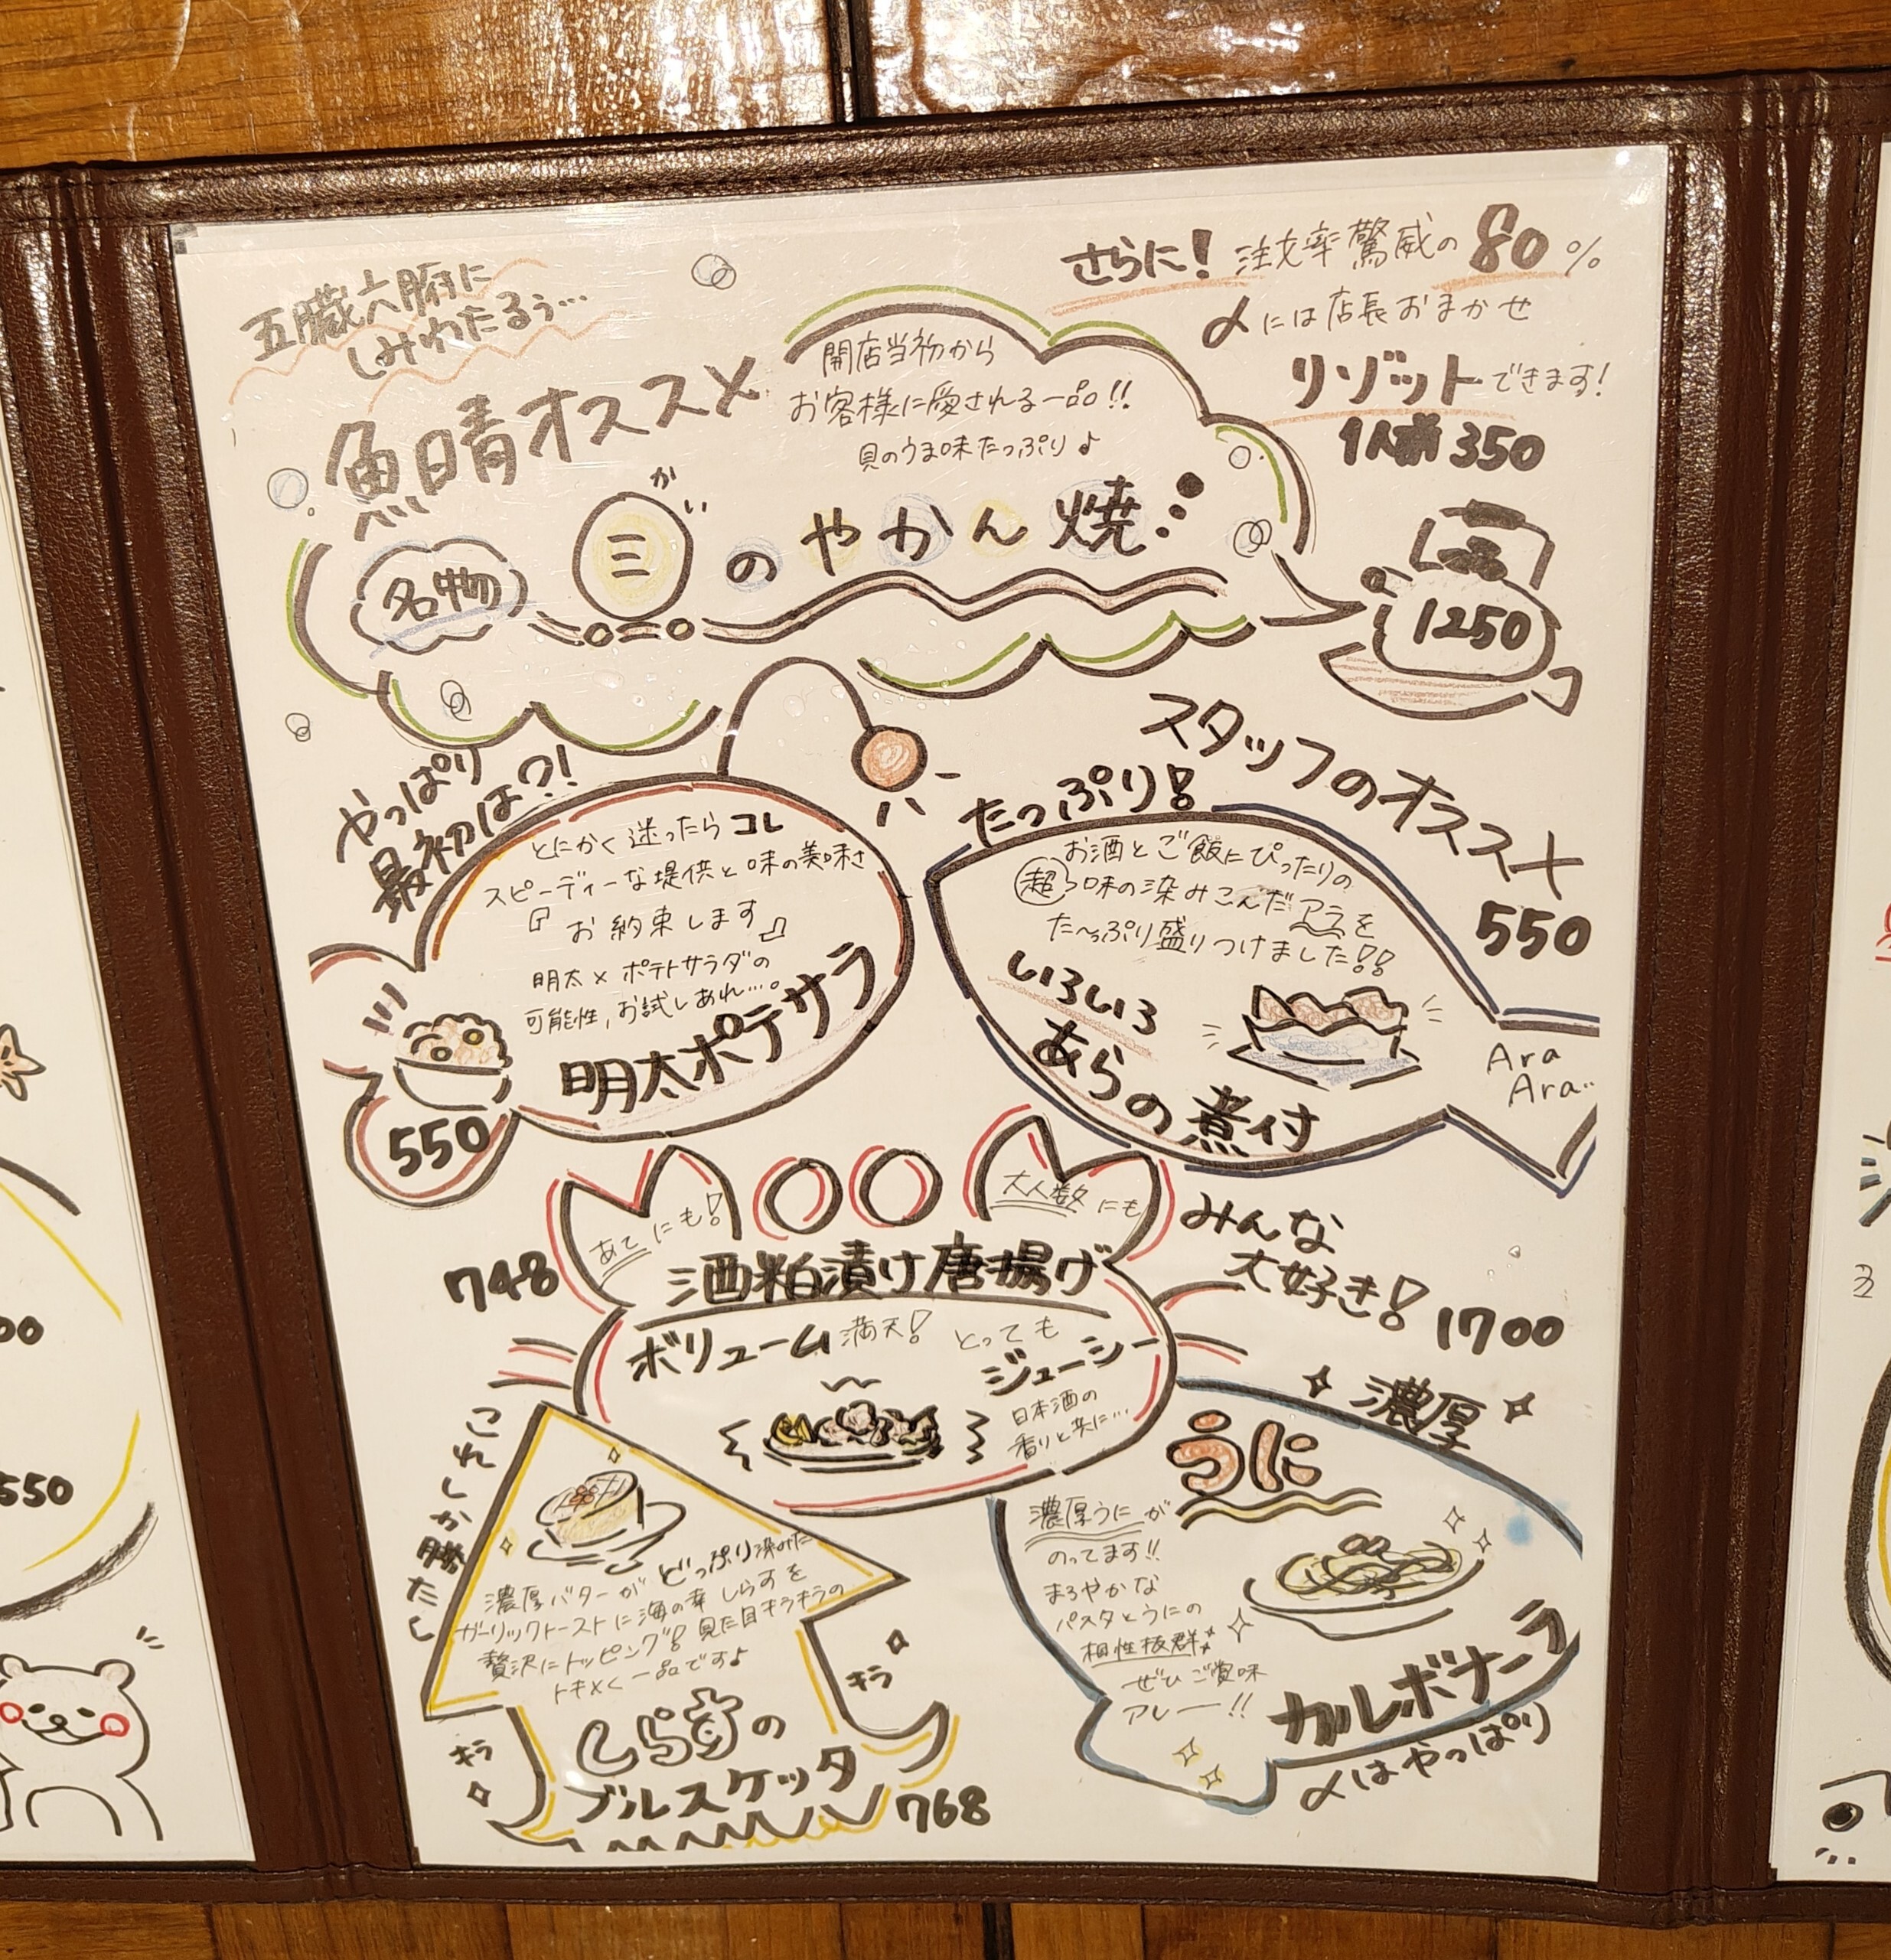 五臓六腑に
しみわたるぅ…
魚晴オススメ
さらに!注文率驚威の80%
〆には店長おまかせ
リゾットできます!
1人前350
開店当初から
お客様に愛される一品!!
貝のうま味たっぷり♪
名物
三のやかん焼
かい
1250
やっぱり
最初は?!
とにかく迷ったらコレ
スピーディーな堤供と味の美味さ
『お約束します』
明太×ポテトサラダの
可能性,お試しあれ…。
明太ポテサラ
550
スタッフのオススメ
550
たっぷり!
お酒とご飯にぴったりの
超味の染みこんだアラを
た〜っぷり盛りつけました!!
いろいろ
あらの煮付
Ara
Ara..
あてにも!
大人数にも
748
酒粕漬け唐揚げ
ボリューム満天!
とっても
ジューシー
日本酒の
香りと共に…
みんな
大好き!
1700
濃厚
うに
濃厚うにが
のってます!!
まろやかな
パスタとうにの
相性抜群
ぜひご賞味
アレー!!
カルボナーラ
〆はやっぱり
これしか勝たん
濃厚バターがどっぷり染みた
ガーリックトーストに海の幸しらすを
贅沢にトッピング!見た目キラキラの
トキメく一品です♪
しらすの
ブルスケッタ
768
キラ
キラ
00
550